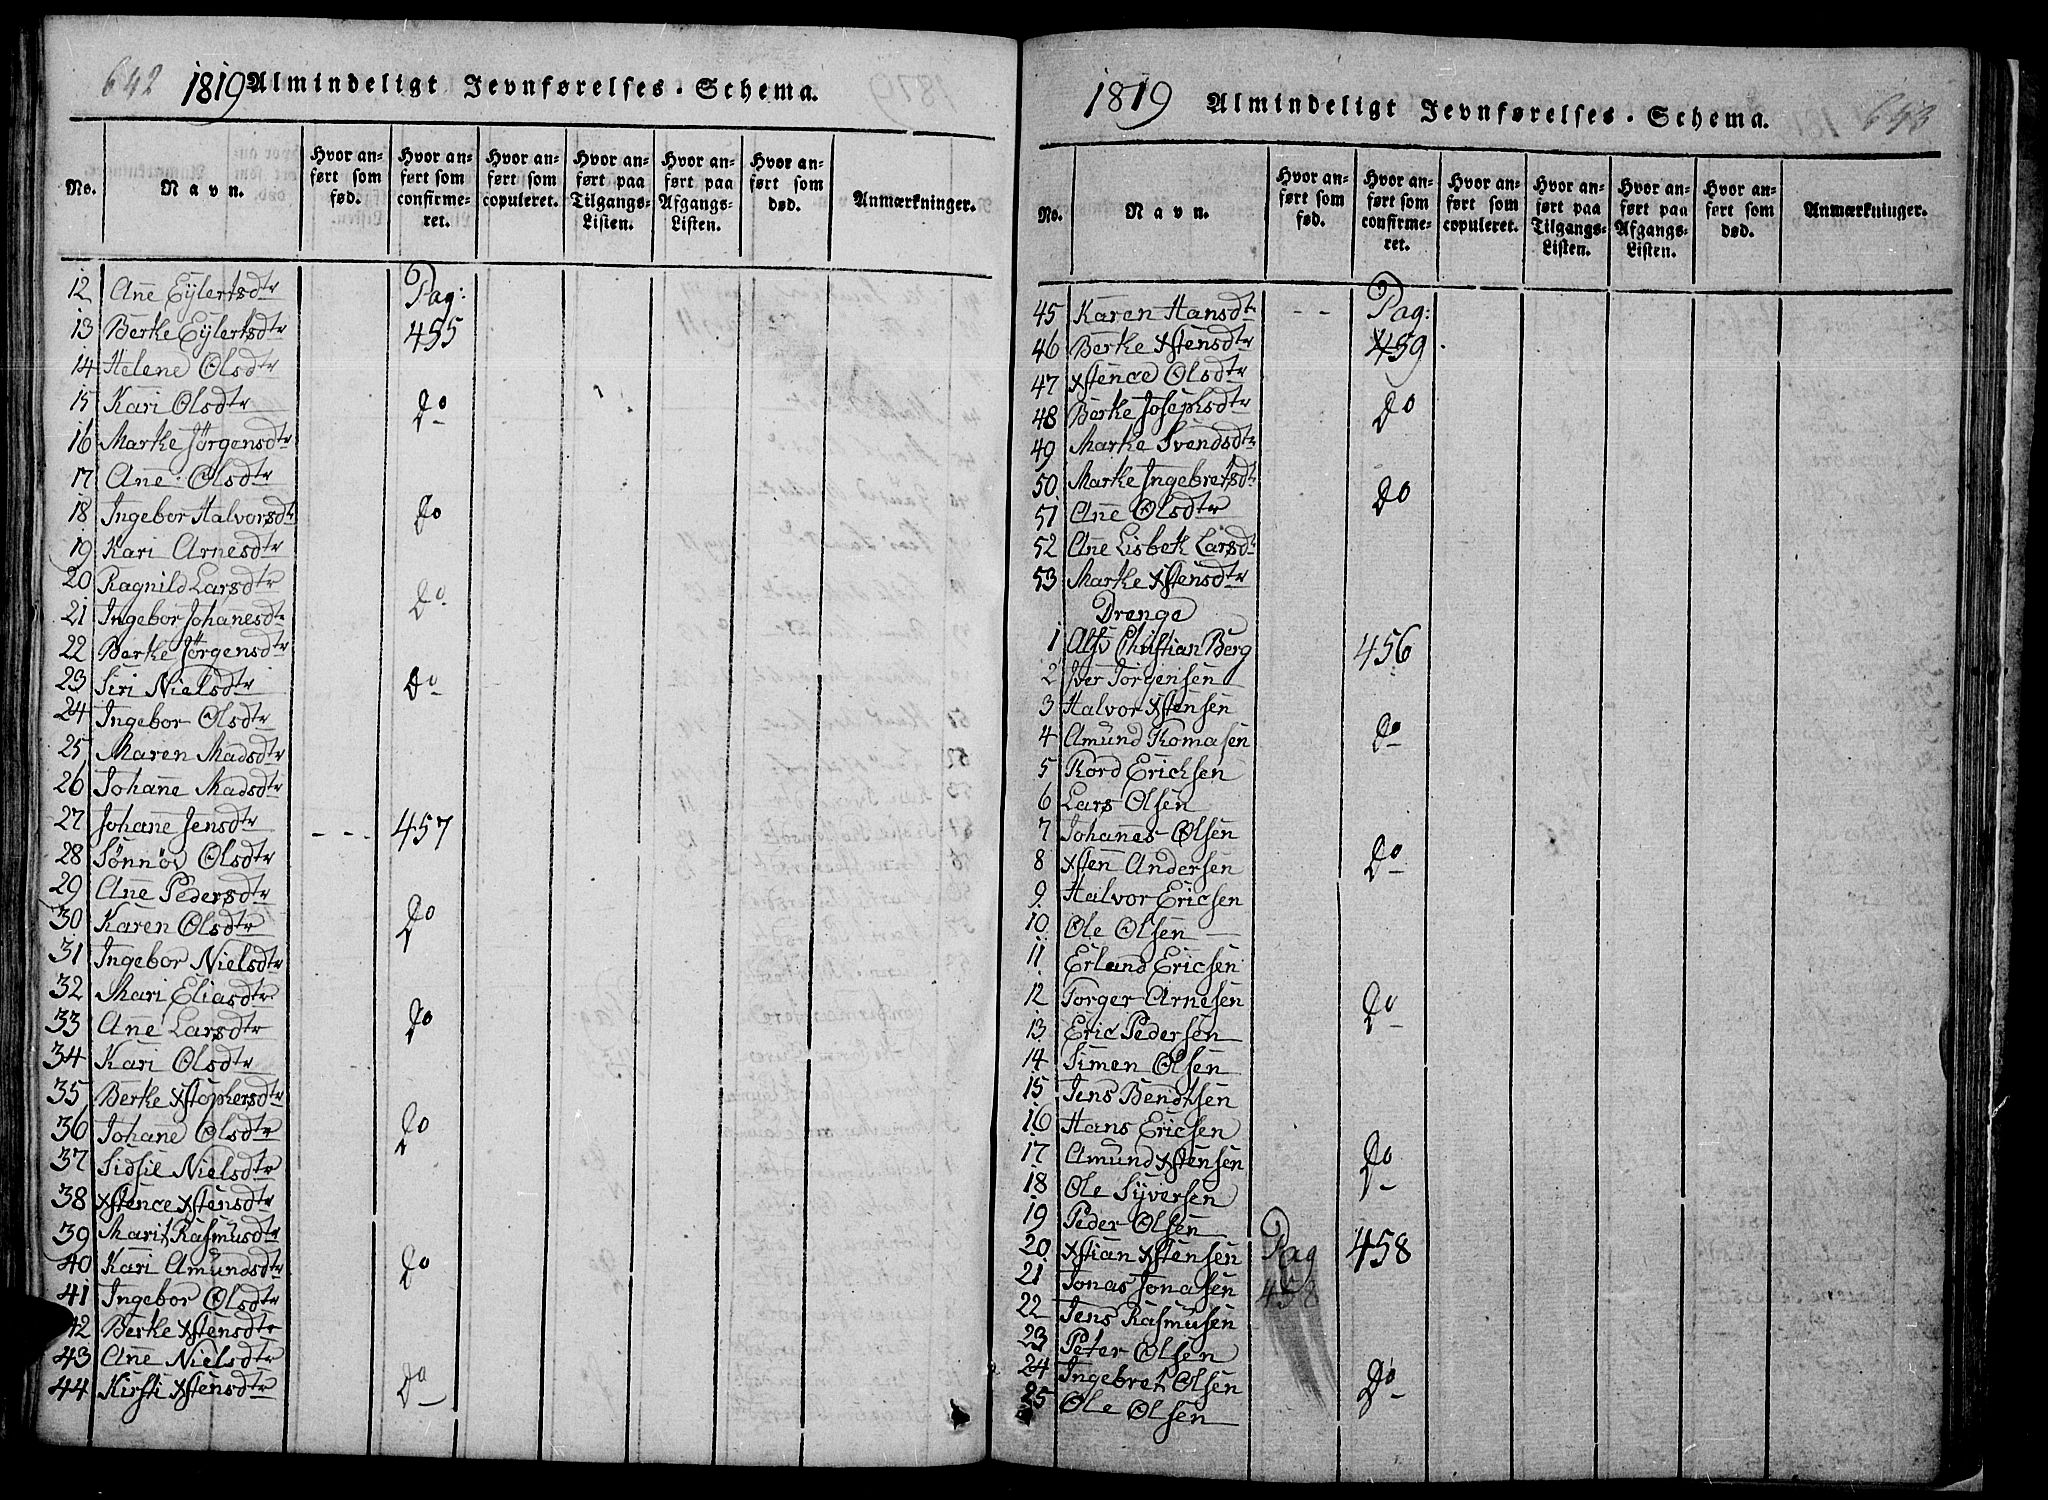 642 1819 Almindeligt Jevnførelses-Schema.
No.
Navn.
Hvor anført som fød.
Hvor anført som confirmeret.
Hvor anført som copuleret.
Hvor anført paa Tilgangs-Listen.
Hvor anført paa Afgangs-Listen.
Hvor anført som død.
Anmærkninger.
12 Ane Eylertsdtr Pag:
13 Berte Eylertsdtr 455
14 Helene Olsdtr
15 Kari Olsdtr Do
16 Marte Jörgensdtr
17 Ane Olsdtr
18 Ingebor Halvorsdtr Do
19 Kari Arnesdtr
20 Ragnild Larsdtr Do
21 Ingebor Johanesdtr
22 Berte Jörgensdtr
23 Siri Nielsdtr Do
24 Ingebor Olsdtr
25 Maren Madsdtr
26 Johane Madsdtr
27 Johane Jensdtr - - - 457
28 Sönnöv Olsdtr
29 Ane Pedersdtr
30 Karen Olsdtr Do
31 Ingebor Nielsdtr
32 Mari Eliasdtr
33 Ane Larsdtr Do
34 Kari Olsdtr
35 Berte Xstophersdtr
36 Johane Olsdtr Do
37 Sidsie Nielsdtr
38 Xstence Xstensdtr
39 Marit Rasmusdtr
40 Kari Amundsdtr Do
41 Ingebor Olsdtr
42 Berte Xstensdtr
43 Ane Nielsdtr
44 Kirsti Xstensdtr Do
1819 Almindeligt Jevnførelses-Schema. 643
No.
Navn.
Hvor anført som fød.
Hvor anført som confirmeret.
Hvor anført som copuleret.
Hvor anført paa Tilgangs-Listen.
Hvor anført paa Afgangs-Listen.
Hvor anført som død.
Anmærkninger.
45 Karen Hansdtr - - Pag:
46 Berte Xstensdtr 459
47 Xstence Olsdtr
48 Berte Josephsdtr Do
49 Marte Svendsdtr
50 Marte Ingebretsdtr Do
51 Ane Olsdtr
52 Ane Lisbet Larsdtr
53 Marte Xstensdtr
Drenge
1 Alf Christian Berg 456
2 Iver Jörgensen
3 Halvor Xstensen
4 Amund Tomasen Do
5 Tord Ericksen
6 Lars Olsen
7 Johanes Olsen
8 Xsten Andersen Do
9 Halvor Ericsen
10 Ole Olsen
11 Erland Ericsen
12 Torger Arnesen Do
13 Eric Pedersen
14 Simen Olsen
15 Jens Bendtsen
16 Hans Ericsen
17 Amund Xstensen Do
18 Ole Syversen
19 Peder Olsen
20 Xstian Xstensen Pag 458
21 Jonas Jonasen 458
22 Jens Rasmusen
23 Peter Olsen
24 Ingebret Olsen Do
25 Ole Olsen